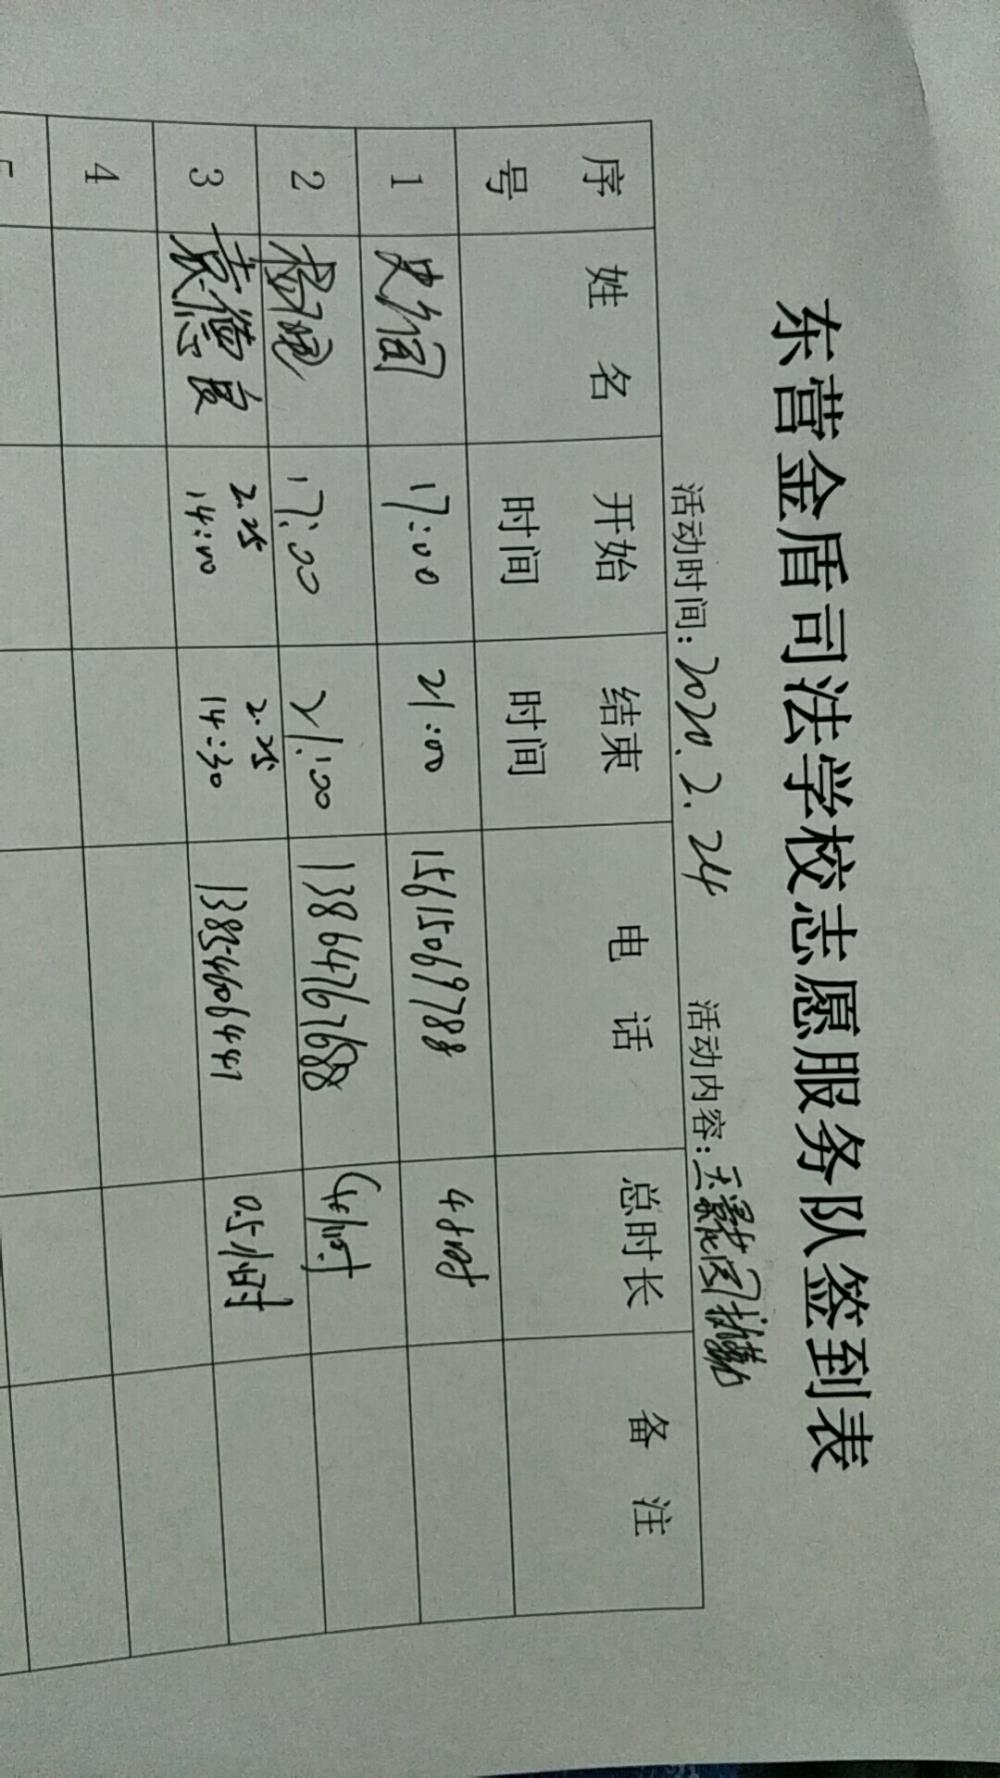 东营金盾司法学校志愿服务队签到表
活动时间: 2020.2.24 活动内容:
序号 姓名 开始时间 结束时间 电话 总时长 备注
1 17:00 21:00 15615069788 4小时
2 17:00 21:00 13864767688 4小时
3 袁德良 2.25 14:00 2.25 14:30 0.5小时
4